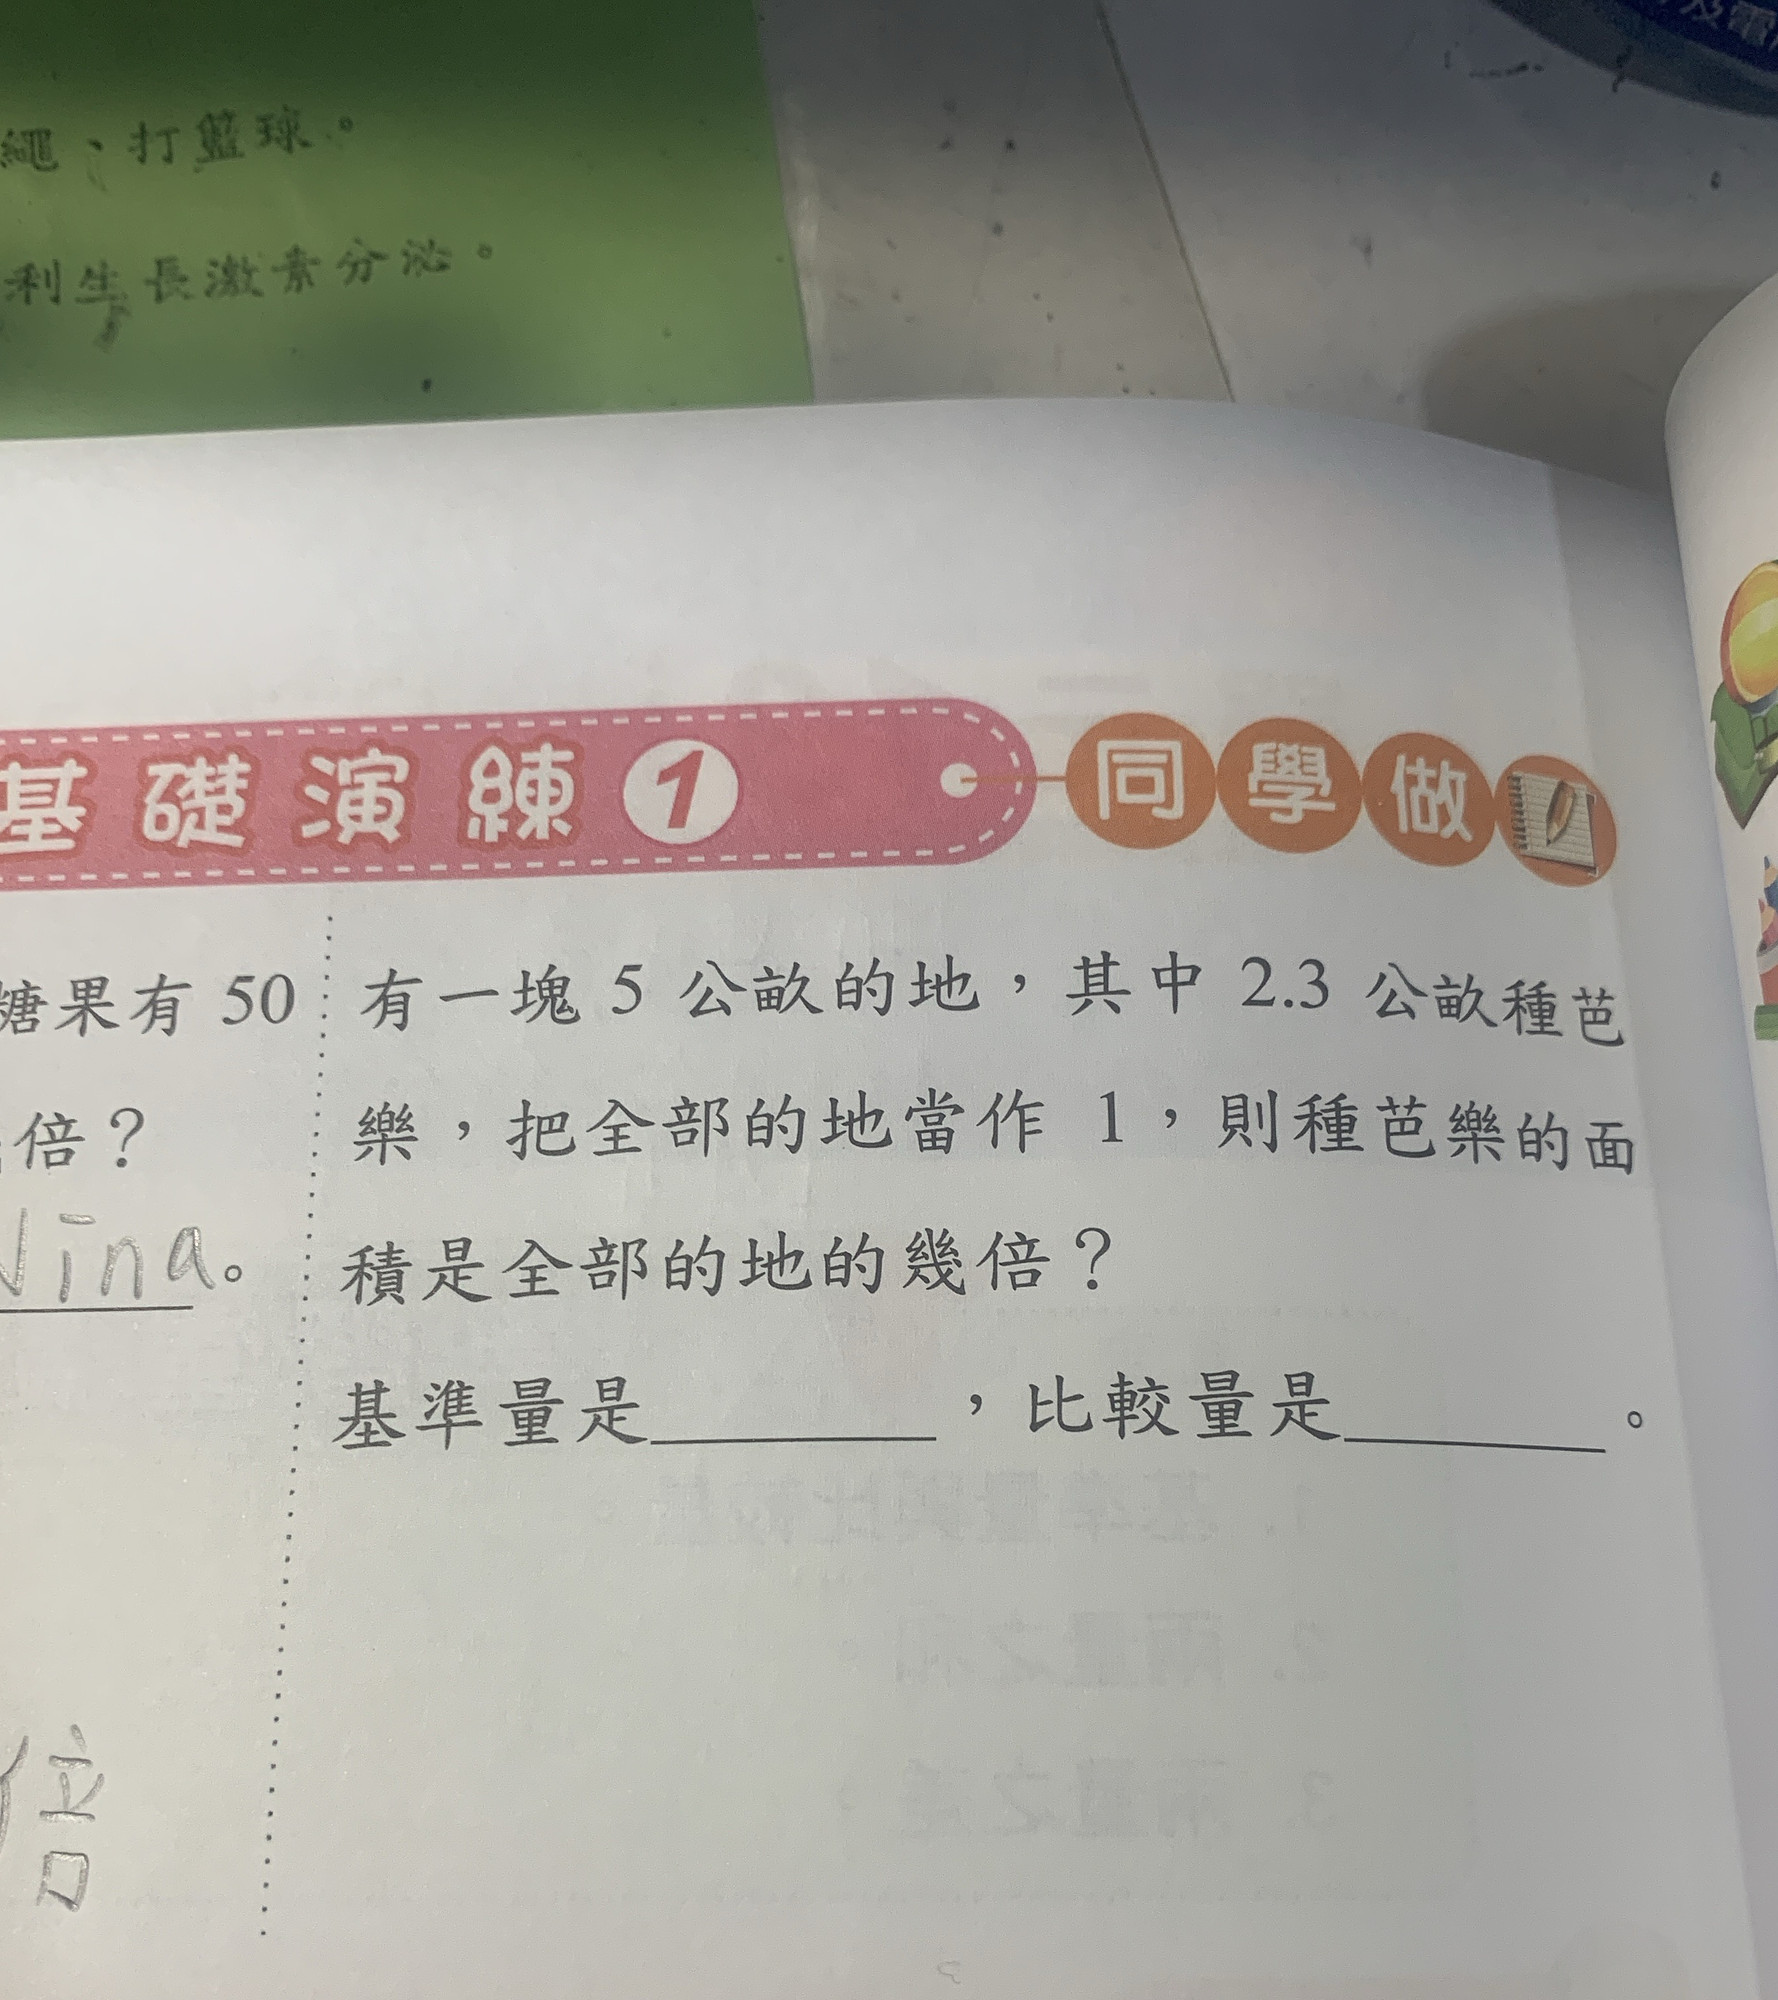 繩、打籃球。
利生長激素分泌。
及電
基礎演練1
同學做
糖果有 50
倍？
Nina。
倍
有一塊 5 公畝的地，其中 2.3 公畝種芭
樂，把全部的地當作 1，則種芭樂的面
積是全部的地的幾倍？
基準量是________，比較量是________。